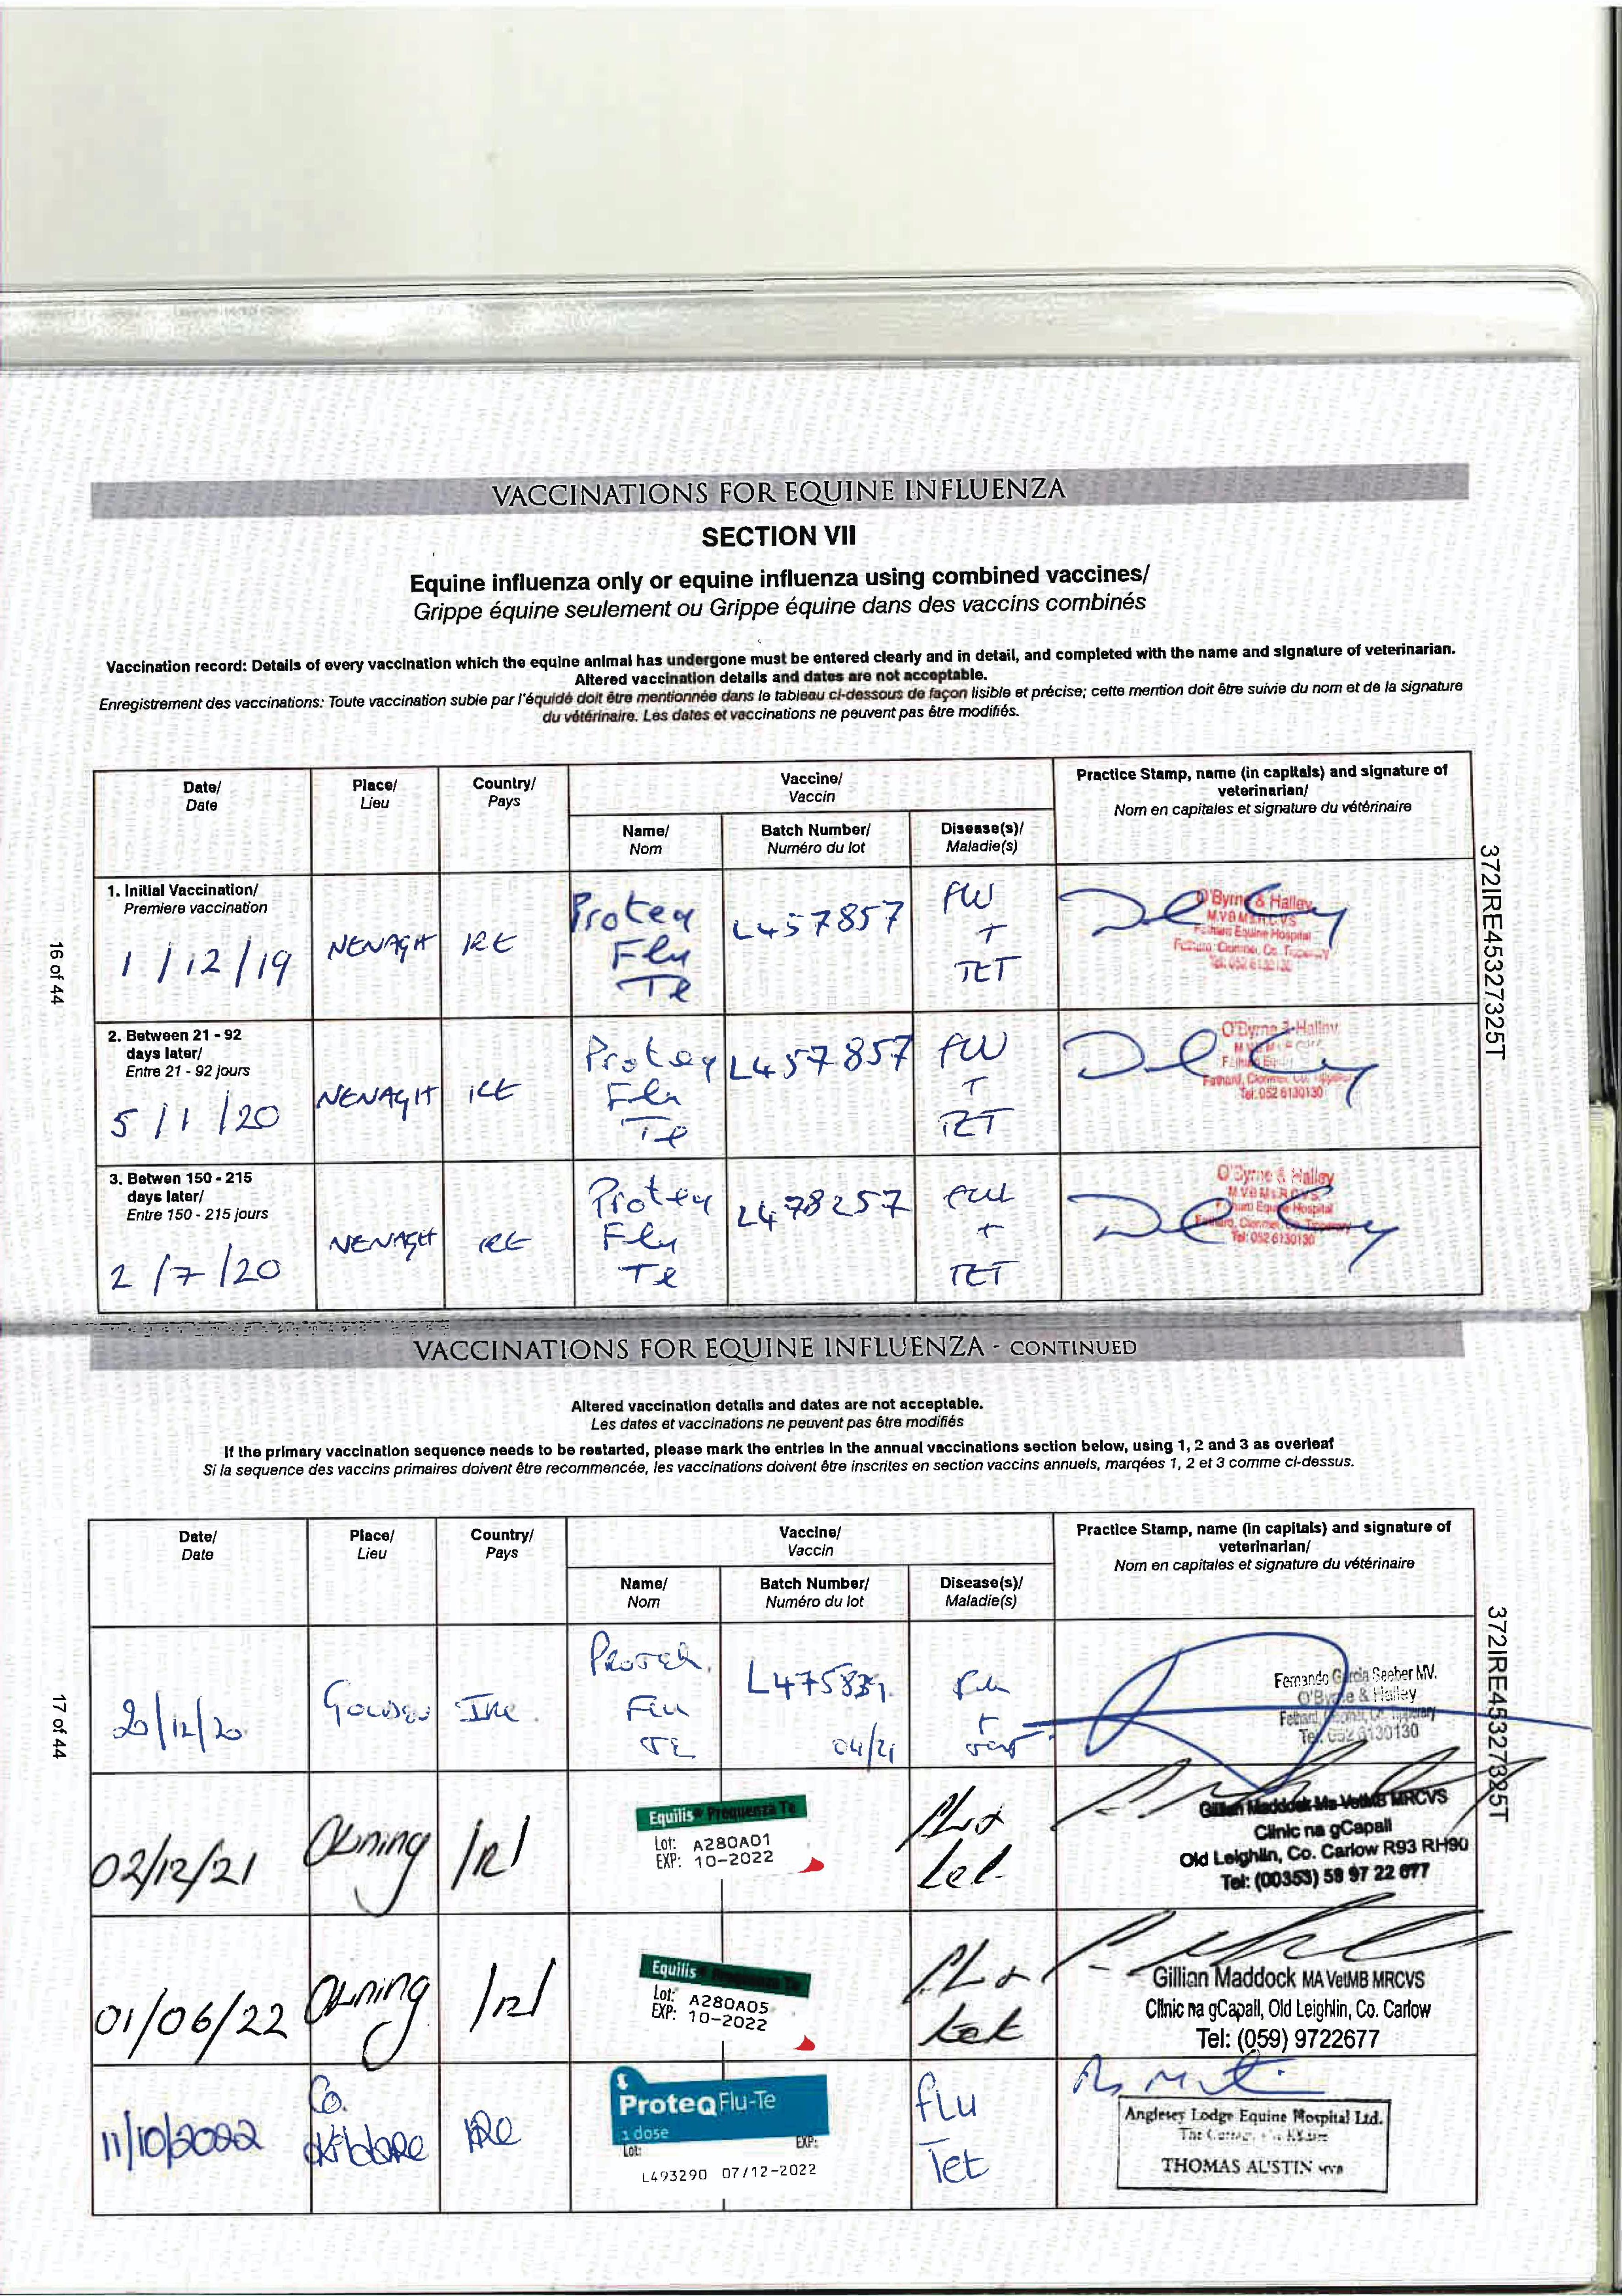 VACCINATIONS FOR EQUINE INFLUENZA
SECTION VII
Equine influenza only or equine influenza using combined vaccines/
Grippe équine seulement ou Grippe équine dans des vaccins combinés
Vaccination record: Details of every vaccination which the equine animal has undergone must be entered clearly and in detail, and completed with the name and signature of veterinarian.
Altered vaccination details and dates are not acceptable.
Enregistrement des vaccinations: Toute vaccination subie par l'équidé doit être mentionnée dans le tableau ci-dessous de façon lisible et précise; cette mention doit être suivie du nom et de la signature
du vétérinaire. Les dates et vaccinations ne peuvent pas être modifiés.
Date/ Place/ Country/ Vaccine/ Practice Stamp, name (in capitals) and signature of
Date Lieu Pays Vaccin veterinarian/
Nom en capitales et signature du vétérinaire
Name/ Batch Number/ Disease(s)/
Nom Numéro du lot Maladie(s)
1. Initial Vaccination/
Premiere vaccination
1/12/19 NENAGH IRE Proteq L457857 FLU
Flu + 
Te TET
O'Byrne & Halley
M.V.B M.R.C.V.S
Fethard Equine Hospital
Fethard, Clonmel, Co. Tipperary
Tel: 052 6130130
2. Between 21 - 92
days later/
Entre 21 - 92 jours
5/1/20 NENAGH IRE Proteq L457857 FLU
Flu +
Te TET
O'Byrne & Halley
Fethard, Clonmel, Co. Tipperary
Tel: 052 6130130
3. Betwen 150 - 215
days later/
Entre 150 - 215 jours
2/7/20 NENAGH IRE Proteq L478257 FLU
Flu +
Te TET
O'Byrne & Halley
Fethard, Clonmel, Co. Tipperary
Tel: 052 6130130
16 of 44
372IRE45327325T
VACCINATIONS FOR EQUINE INFLUENZA - CONTINUED
Altered vaccination details and dates are not acceptable.
Les dates et vaccinations ne peuvent pas être modifiés
If the primary vaccination sequence needs to be restarted, please mark the entries in the annual vaccinations section below, using 1, 2 and 3 as overleaf
Si la sequence des vaccins primaires doivent être recommencée, les vaccinations doivent être inscrites en section vaccins annuels, marqées 1, 2 et 3 comme ci-dessus.
Date/ Place/ Country/ Vaccine/ Practice Stamp, name (in capitals) and signature of
Date Lieu Pays Vaccin veterinarian/
Nom en capitales et signature du vétérinaire
Name/ Batch Number/ Disease(s)/
Nom Numéro du lot Maladie(s)
20/12/20 Ire. Flu
Flu +
TE 04/21
Fernando Garcia Seeber MV.
O'Byrne & Halley
Fethard, Clonmel, Co. Tipperary
Tel: 052 6130130
02/12/21 Owning Irl Equilis® Prequenza Te Flu +
Lot: A280A01
EXP: 10-2022
Tet.
Gillian Maddock Ma VetMB MRCVS
Clinic na gCapall
Old Leighlin, Co. Carlow R93 RH90
Tel: (00353) 59 97 22 677
01/06/22 Owning Irl Equilis® Prequenza Te Flu +
Lot: A280A05
EXP: 10-2022
tet
Gillian Maddock MA VetMB MRCVS
Clinic na gCapall, Old Leighlin, Co. Carlow
Tel: (059) 9722677
11/10/2022 Co. Kildare IRE ProteqFlu-Te flu
1 dose
Lot: EXP:
L493290 07/12-2022
Tet
Anglesey Lodge Equine Hospital Ltd.
THOMAS AUSTIN MVB
17 of 44
372IRE45327325T